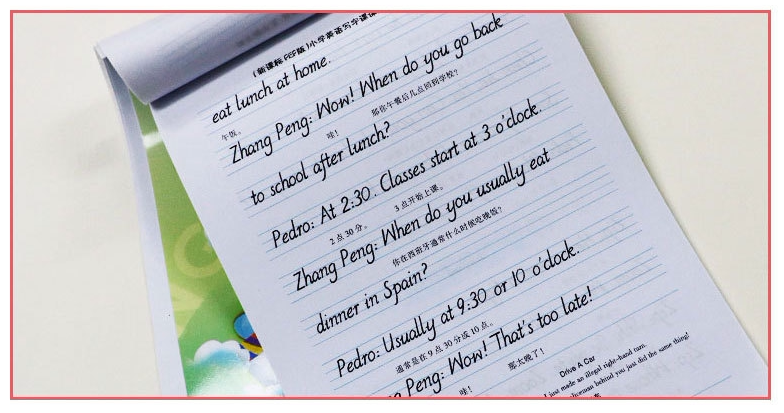 (新课标PEP版)小学英语写字课课
eat lunch at home.
午饭。
Zhang Peng: Wow! When do you go back
哇! 那你午餐后几点回到学校?
to school after lunch?
Pedro: At 2:30. Classes start at 3 o'clock.
2点30分。 3点开始上课。
Zhang Peng: When do you usually eat
你在西班牙通常什么时候吃晚饭?
dinner in Spain?
Pedro: Usually at 9:30 or 10 o'clock.
通常是在9点30分或10点。
Peng: Wow! That's too late!
哇! 那太晚了!
Drive A Car
I just made an illegal right-hand turn.
behind you just did the same thing!